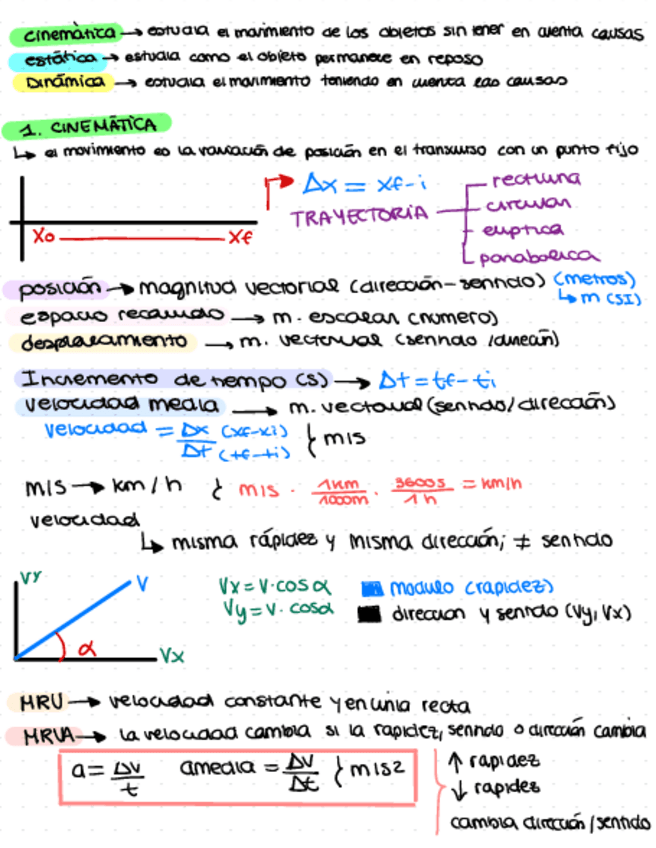 cinemática → estudia el movimiento de los objetos sin tener en cuenta causas
estática → estudia como el objeto permanece en reposo
Dinámica → estudia el movimiento teniendo en cuenta las causas
1. CINEMÁTICA
↳ el movimiento es la variación de posición en el transcurso con un punto fijo
Δx = xf-i
TRAYECTORIA
rectilina
circular
eliptica
parabolica
X0 Xf
posición → magnitud vectorial (dirección-sentido) (metros)
↳ m (SI)
espacio recorrido → m. escalar (numero)
desplazamiento → m. vectorial (sentido /direción)
Incremento de tiempo (s) → Δt = tf - ti
velocidad media → m. vectorial (sentido/dirección)
velocidad = Δx (xf-xi) / Δt (tf-ti) } m/s
m/s → km/h { m/s · 1km/1000m · 3600s/1h = km/h
velocidad
↳ misma rápidez y misma dirección; ≠ sentido
Vy V
α
Vx
Vx = V·cosα
Vy = V·cosα
modulo (rapidez)
direccion y sentido (Vy, Vx)
MRU → velocidad constante y en unla recta
MRUA → La velocidad cambia si la rapidez, sentido o dirección cambia
a = Δv/t amedia = Δv/Δt } m/s2
↑ rapidez
↓ rapidez
cambia dirección/sentido